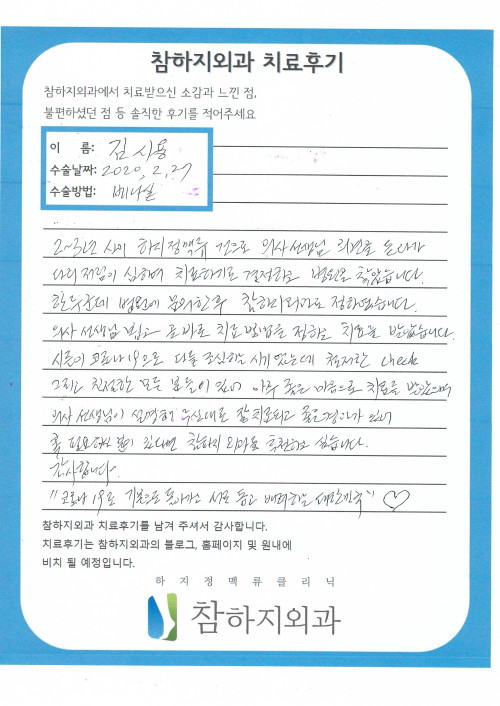 참하지외과 치료후기
참하지외과에서 치료받으신 소감과 느낀 점,
불편하셨던 점 등 솔직한 후기를 적어주세요
이 름: 김 시용
수술날짜: 2020, 2, 27
수술방법: 베나실
2~3년 사이 하지정맥류 의사선생님 의견을 듣다가
다리저림이 심하여 치료하기로 결정하고 병원을 찾았습니다.
한두군데 병원에 문의한후 참하지외과로 정하였습니다.
의사 선생님 뵙고 곧바로 치료방법을 정하고 치료를 받았습니다.
시즌이 코로나19으로 다들 조심하는 시기였는데 철저한 check
그리고 친절한 모든 분들이 있어 아주 좋은 마음으로 치료를 받았으며
의사 선생님이 설명해 주신대로 잘 치료되고 좋은결과가 있어
혹 필요하신 분이 있다면 참하지외과를 추천하고 싶습니다.
감사합니다.
"코로나 19로 서로 돕고 배려하는 대한민국" ♡
참하지외과 치료후기를 남겨 주셔서 감사합니다.
치료후기는 참하지외과의 블로그, 홈페이지 및 원내에
비치 될 예정입니다.
하지정맥류클리닉
참하지외과